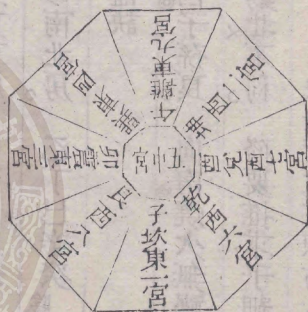 午離東九宮
坤西二宮
酉兌西七宮
乾西六宮
子坎東一宮
艮西八宮
卯震東三宮
巽東四宮
五中宮